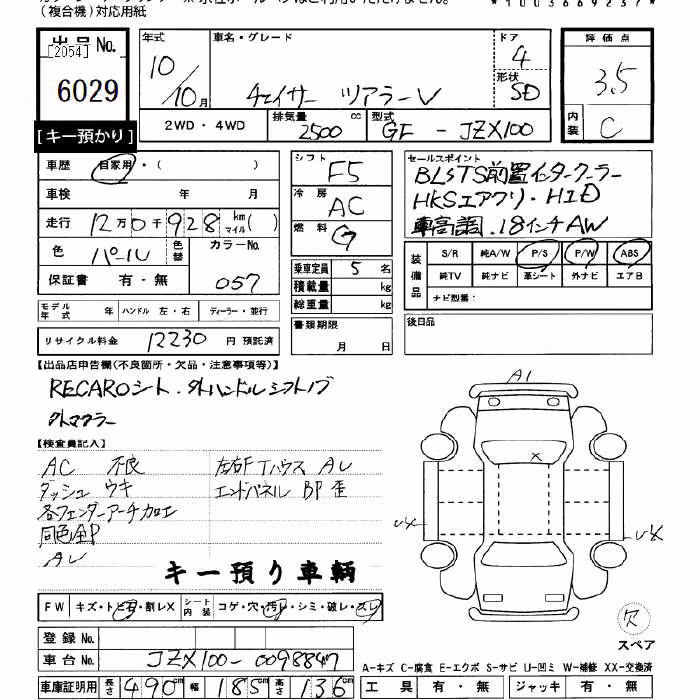 (複合機)対応用紙
*1003669237*
出品No.
[2054]
6029
【キー預かり】
年式
10/10月
車名・グレード
チェイサー ツアラーV
ドア
4
形状
SD
評価点
3.5
内装
C
2WD・4WD
排気量
2500
cc
型式
GF - JZX100
車歴
自家用・( )
車検 年 月
走行 12万0千928 km マイル( )
色 パール
色替
カラーNo.
057
保証書 有・無
シフト
F5
冷房
AC
燃料
G
乗車定員 5 名
積載量 kg
総重量 kg
書類期限
月 日
セールスポイント
BLSTS前置インタークーラー
HKSエアクリ・HID
車高調.18インチAW
装備品
S/R 純A/W P/S P/W ABS
純TV 純ナビ 革シート 外ナビ エアB
ナビ型番:
後日品
モデル年式 年 ハンドル 左・右 ディーラー・並行
リサイクル料金 12230 円 預託済
【出品店申告欄(不良箇所・欠品・注意事項等)】
RECAROシート.外ハンドルシフトノブ
外マフラー
【検査員記入】
AC 不良
ダッシュ ウキ
各フェンダーアーチ加工
同色全P
AU
左右FTハウス AU
エンドパネル BP 歪
キー預り車輌
FW キズ・トビ石・割レX
シート内装 コゲ・穴・汚レ・シミ・破レ・スレ
登録No.
車台No. JZX100-0098847
車庫証明用 長さ 490 cm 幅 185 cm 高さ 136 cm
A1
X
欠
スペア
A-キズ C-腐食 E-エクボ S-サビ U-凹ミ W-補修 XX-交換済
工具 有・無 ジャッキ 有・無